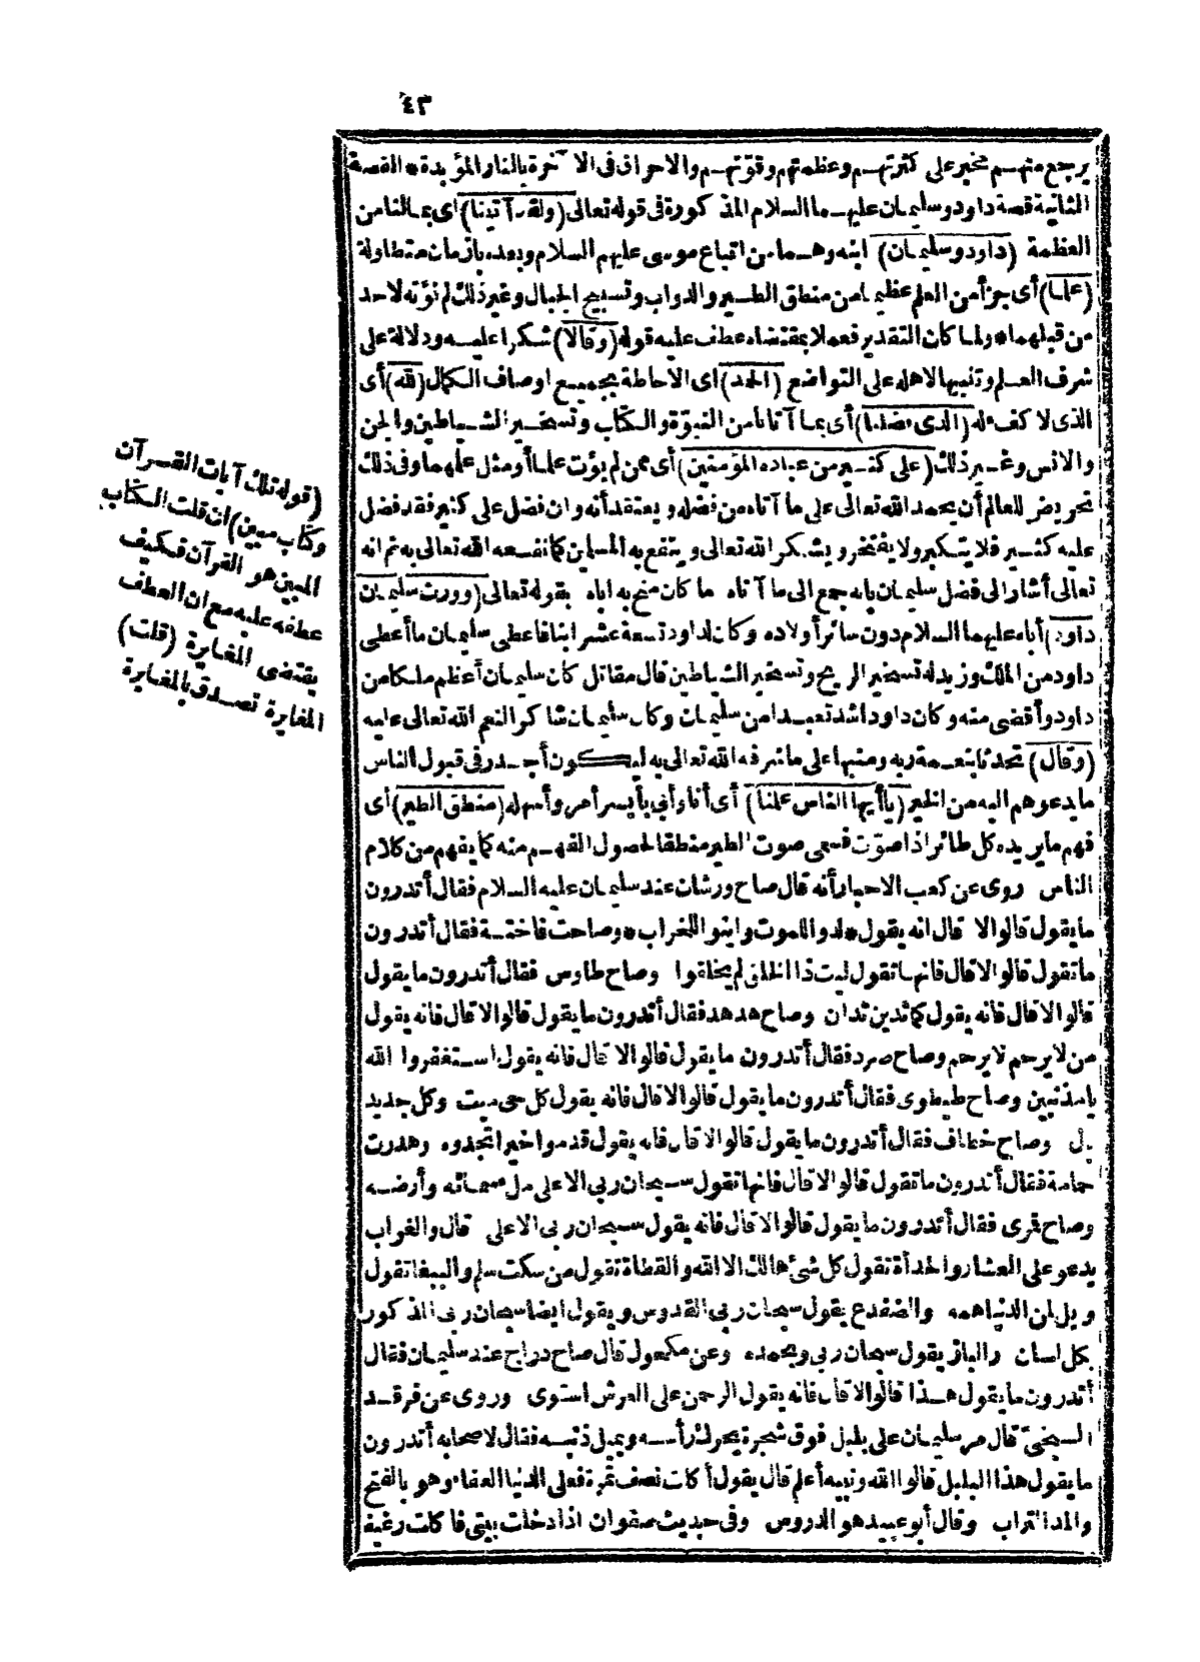 ٤٣
يرجع منهم مخبر على كثرتهم وعظمتهم وقوّتهم والاحراق فى الآخرة بالنار المؤبدة * القصة
الثانية قصة داود وسليمان عليهما السلام المذكورة فى قوله تعالى (ولقد آتينا) أى بمالنا من
العظمة (داود وسليمان) ابنه وهما من اتباع موسى عليهم السلام وبعده بازمان متطاولة
(علما) أى جزأ من العلم عظيما من منطق الطير والدواب وتسبيح الجبال وغير ذلك لم نؤته لاحد
من قبلهما * ولما كان التقدير فعملا بمقتضاه عطف عليه قوله (وقالا) شكرا عليه ودلالة على
شرف العلم وتنبيها لاهله على التواضع (الحمد) اى الاحاطة بجميع اوصاف الكمال (لله) أى
الذى لا كفء له (الذى فضلنا) أى بما آتانا من النبوّة والكتاب وتسخير الشياطين والجن
والانس وغير ذلك (على كثير من عباده المؤمنين) أى ممن لم يؤت علما أو مثل علمهما وفى ذلك
تحريض للعالم أن يحمد الله تعالى على ما آتاه من فضله ويعتقد أنه وان فضل على كثير فقد فضل
عليه كثير فلا يتكبر ولا يفتخر ويشكر الله تعالى وينتفع به المسلمين كما نفعه الله تعالى به ثم انه
تعالى أشار الى فضل سليمان بانه جمع الى ما آتاه ما كان منح به اباه بقوله تعالى (وورث سليمان
داود) أباه عليهما السلام دون سائر أولاده وكان لداود تسعة عشر ابنا فاعطى سليمان ما أعطى
داود من الملك وزيد له تسخير الريح وتسخير الشياطين قال مقاتل كان سليمان أعظم ملكا من
داود وأقضى منه وكان داود اشد تعبدا من سليمان وكان سليمان شاكرا لنعم الله تعالى عليه
(وقال) تحدثا بنعمة ربه ومنبها على ما شرفه الله تعالى به ليكون أجدر فى قبول الناس
ما يدعوهم اليه من الخير (يا أيها الناس علمنا) أى أنا وأبى بأيسر أمر وأسهله (منطق الطير) أى
فهم ما يريده كل طائر اذا صوّت فسمى صوت الطير منطقا لحصول الفهم منه كما يفهم من كلام
الناس روى عن كعب الاحبار أنه قال صاح ورشان عند سليمان عليه السلام فقال أتدرون
ما يقول قالوا لا قال انه يقول * لدوا للموت وابنوا للخراب * وصاحت فاختة فقال أتدرون
ما تقول قالوا لا قال فانها تقول ليت ذا الخلق لم يخلقوا وصاح طاوس فقال أتدرون ما يقول
قالوا لا قال فانه يقول كما تدين تدان وصاح هدهد فقال أتدرون ما يقول قالوا لا قال فانه يقول
من لا يرحم لا يرحم وصاح صرد فقال أتدرون ما يقول قالوا لا قال فانه يقول استغفروا الله
يا مذنبين وصاح طيطوى فقال أتدرون ما يقول قالوا لا قال فانه يقول كل حى ميت وكل جديد
بال وصاح خطاف فقال أتدرون ما يقول قالوا لا قال فانه يقول قدموا خيرا تجدوه وهدرت
حمامة فقال أتدرون ما تقول قالوا لا قال فانها تقول سبحان ربى الاعلى مل سمائه وأرضه
وصاح قمرى فقال أتدرون ما يقول قالوا لا قال فانه يقول سبحان ربى الاعلى قال والغراب
يدعو على العشار والحدأة تقول كل شئ هالك الا الله والقطاة تقول من سكت سلم والببغا تقول
ويل لمن الدنيا همه والضفدع يقول سبحان ربى القدوس ويقول ايضا سبحان ربى المذكور
بكل لسان والباز يقول سبحان ربى وبحمده وعن مكحول قال صاح دراج عند سليمان فقال
أتدرون ما يقول هذا قالوا لا قال فانه يقول الرحمن على العرش استوى وروى عن فرقد
السبخىّ قال مر سليمان على بلبل فوق شجرة يحرك رأسه ويميل ذنبه فقال لاصحابه أتدرون
ما يقول هذا البلبل قالوا الله ونبيه أعلم قال يقول أكلت نصف تمرة فعلى الدنيا العفاء وهو بالفتح
والمد التراب وقال أبو عبيد هو الدروس وفى حديث صفوان اذا دخلت بيتى فاكلت رغيفا
(قوله تلك آيات القرآن
وكتاب مبين) ان قلت الكتاب
المبين هو القرآن فكيف
عطفه عليه مع ان العطف
يقتضى المغايرة (قلت)
المغايرة تصدق بالمغايرة